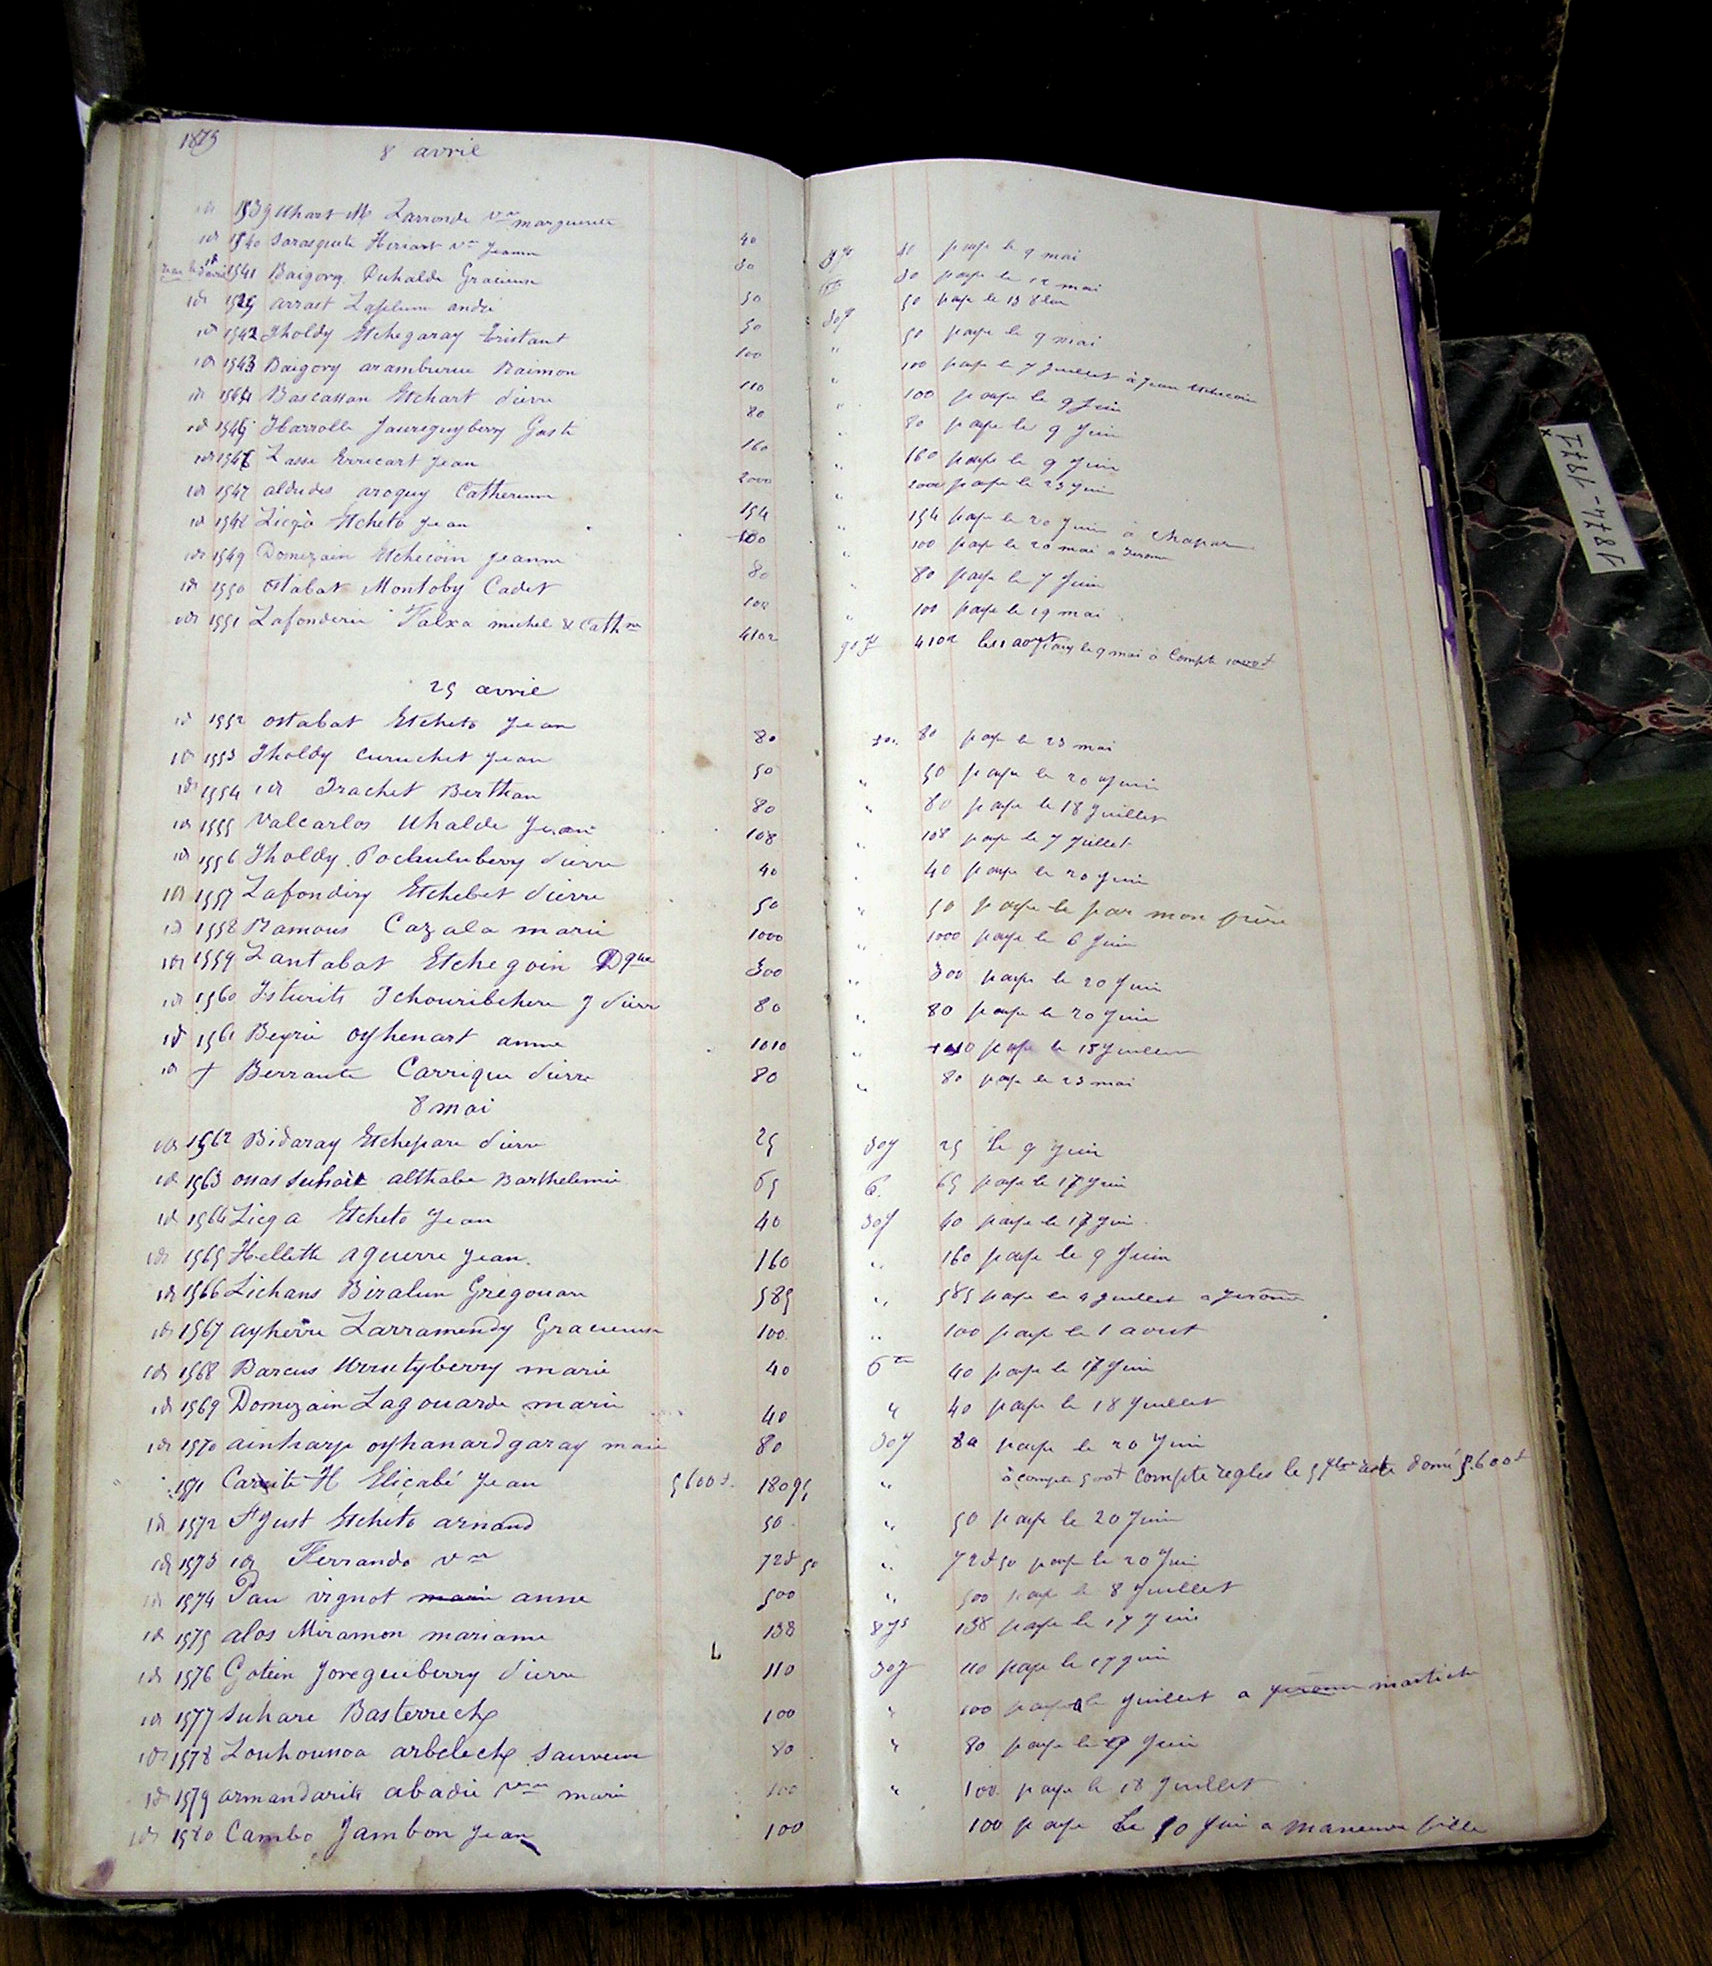 1873
8 avril
id 1539 Uhart M Larronde Vve marguerite 40 30 j 40 paye le 9 mai
id 1540 Sarasquete Heriart Vve Jeanne 30 30 paye le 12 mai
1541 Baigory Duhalde Gracieuse 50 50 paye le 13
id arrast Lapleume andré 50 30 j 50 paye le 9 mai
id 1542 Iholdy Etchegaray tristant 100 " 100 paye le 7 Juillet à Jean Etchecoin
id 1543 Baigory aramburu Raimon 110 " 100 paye le 9 Juin
id 1544 Bascassan Etchart Pierre 80 " 80 paye le 9 Juin
id 1545 Ibarrolle Jaureguyberry Gastn 160 " 160 paye le 9 Juin
id 1546 Lasse Erricart Jean 2000 " 2000 paye le 23 Juin
id 1547 aldudes aroguy Catherine 154 " 154 paye le 20 Juin à Chapar
id 1548 Licqà Etcheto Jean 100 " 100 paye le 20 mai a Jerome
id 1549 Domezain Etchecoin Jeanne 80 " 80 paye le 7 Juin
id 1550 Ostabat Montoby Cadet 100 " 100 paye le 19 mai
id 1551 Lafonderie Falxa michel & Cathne 4102 90 j 4102 le 9 mai à Compte
25 avril
id 1552 ostabat Etcheto Jean 80 30. 80 paye le 23 mai
id 1553 Iholdy Curuchet Jean 50 " 50 paye le 20 Juin
id 1554 id Irachet Berthan 80 " 80 paye le 18 Juillet
id 1555 Valcarlos Uhalde Jean 108 " 108 paye le 7 Juillet
id 1556 Iholdy Pochuluberry Pierre 40 " 40 paye le 20 Juin
id 1557 Lafondiry Etchebet Pierre 50 " 50 paye le par mon frère
id 1558 Ramous Cazala marie 1000 " 1000 paye le 6 Juin
id 1559 Lantabat Etchegoin Dque 300 " 300 paye le 20 Juin
id 1560 Isturits Ichouribehere J Pierre 80 " 80 paye le 20 Juin
id 1561 Beyrie oyhenart anne 1010 " 1010 paye le 18 Juillet
id + Berraute Carrique Pierre 80 " 80 paye le 23 mai
8 mai
id 1562 Bidaray Etchepare Pierre 25 30 j 25 le 9 Juin
id 1563 ossas Suhare althabe Barthelemie 65 6. 65 paye le 17 Juin
id 1564 Licq a Etcheto Jean 40 30 j 40 paye le 17 Juin
id 1565 Hellette aguerre Jean. 160 " 160 paye le 9 Juin
id 1566 Lichans Biralun Gregouan 585 " 585 paye le 4 Juillet a Jerome
id 1567 ayherre Larramendy Gracieuse 100 " 100 paye le 1 aout
id 1568 Barcus Urrutyberry marie 40 40 paye le 17 Juin
id 1569 Domezain Lagouarde marie 40 " 40 paye le 18 Juillet
id 1570 ainharp oyhanardgaray marie 80 30 j 80 paye le 20 Juin
1571 Carxite H Eliçabé Jean 5600 f. 18095 " à compte 500 f compte regles le 5 reste donné 5.600 f
id 1572 St Just Etcheto arnaud 50 " 50 paye le 20 Juin
id 1573 id Ferrando Vve 72 f 50 " 72 f 50 paye le 20 Juin
id 1574 Pau vignot marie anne 500 " 500 paye le 8 Juillet
id 1575 alos Miramon marianne 138 8 js 138 paye le 17 Juin
id 1576 Gotein Joreguiberry Pierre 110 30 j 110 paye le 17 Juin
id 1577 Suhare Basterreche 100 " 100 paye le Juillet a Jerome martiche
id 1578 Louhoussoa arbeleche Sauveur 80 " 80 paye le 9 Juin
id 1579 armandarits abadie Vve marie 100 " 100 paye le 18 Juillet
id 1580 Cambo Jambon Jean 100 100 paye le 10 Juin a fille
1871-1874